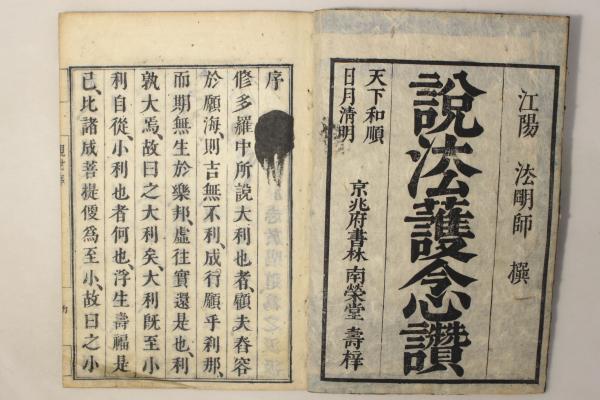 江陽 法明師 撰
説法護念讃
天下和順
日月清明
京兆府書林 南榮堂 壽梓
序
修多羅中所説大利也者、顧夫舂容
於願海、則吉無不利、成行願乎刹那、
而期無生於樂邦、虚往實還是也、利
孰大焉、故曰之大利矣、大利既至小
利自從、小利也者何也、浮生壽福是
已、比諸成菩提便爲至小、故曰之小